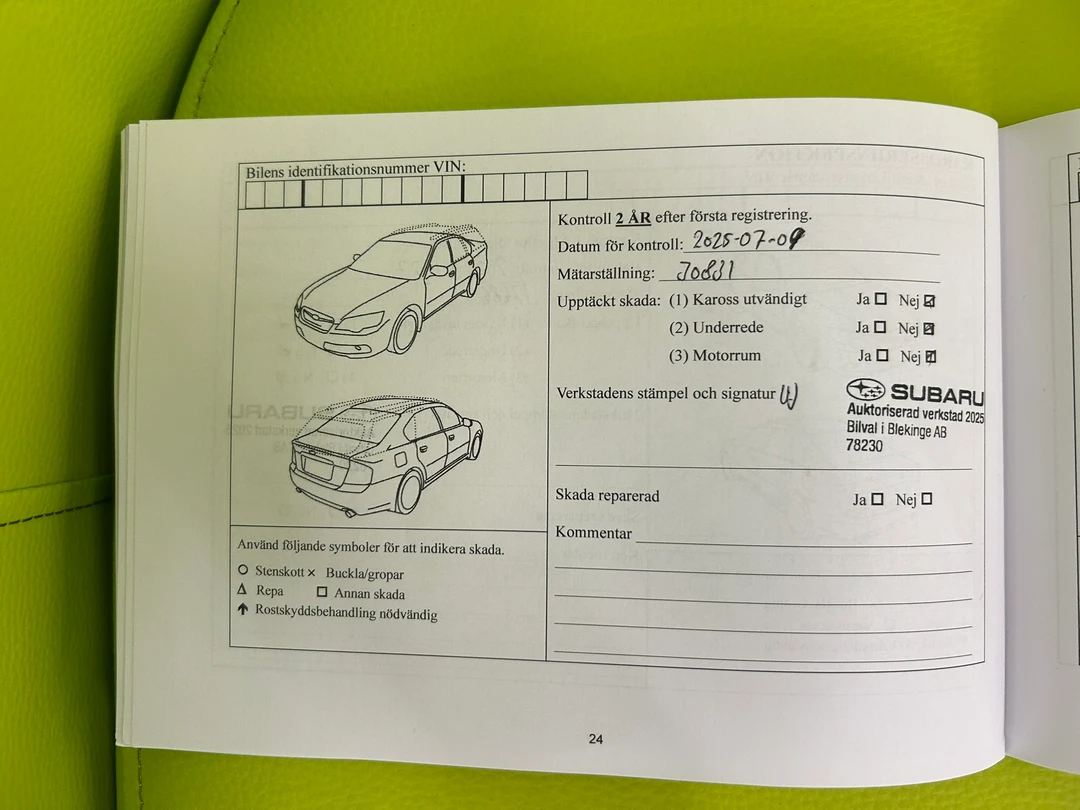 Bilens identifikationsnummer VIN:
Kontroll 2 ÅR efter första registrering.
Datum för kontroll: 2025-07-09
Mätarställning: 30831
Upptäckt skada: (1) Kaross utvändigt Ja Nej
(2) Underrede Ja Nej
(3) Motorrum Ja Nej
Verkstadens stämpel och signatur
SUBARU
Auktoriserad verkstad 2025
Bilval i Blekinge AB
78230
Skada reparerad Ja Nej
Kommentar
Använd följande symboler för att indikera skada.
Stenskott × Buckla/gropar
Repa Annan skada
Rostskyddsbehandling nödvändig
24